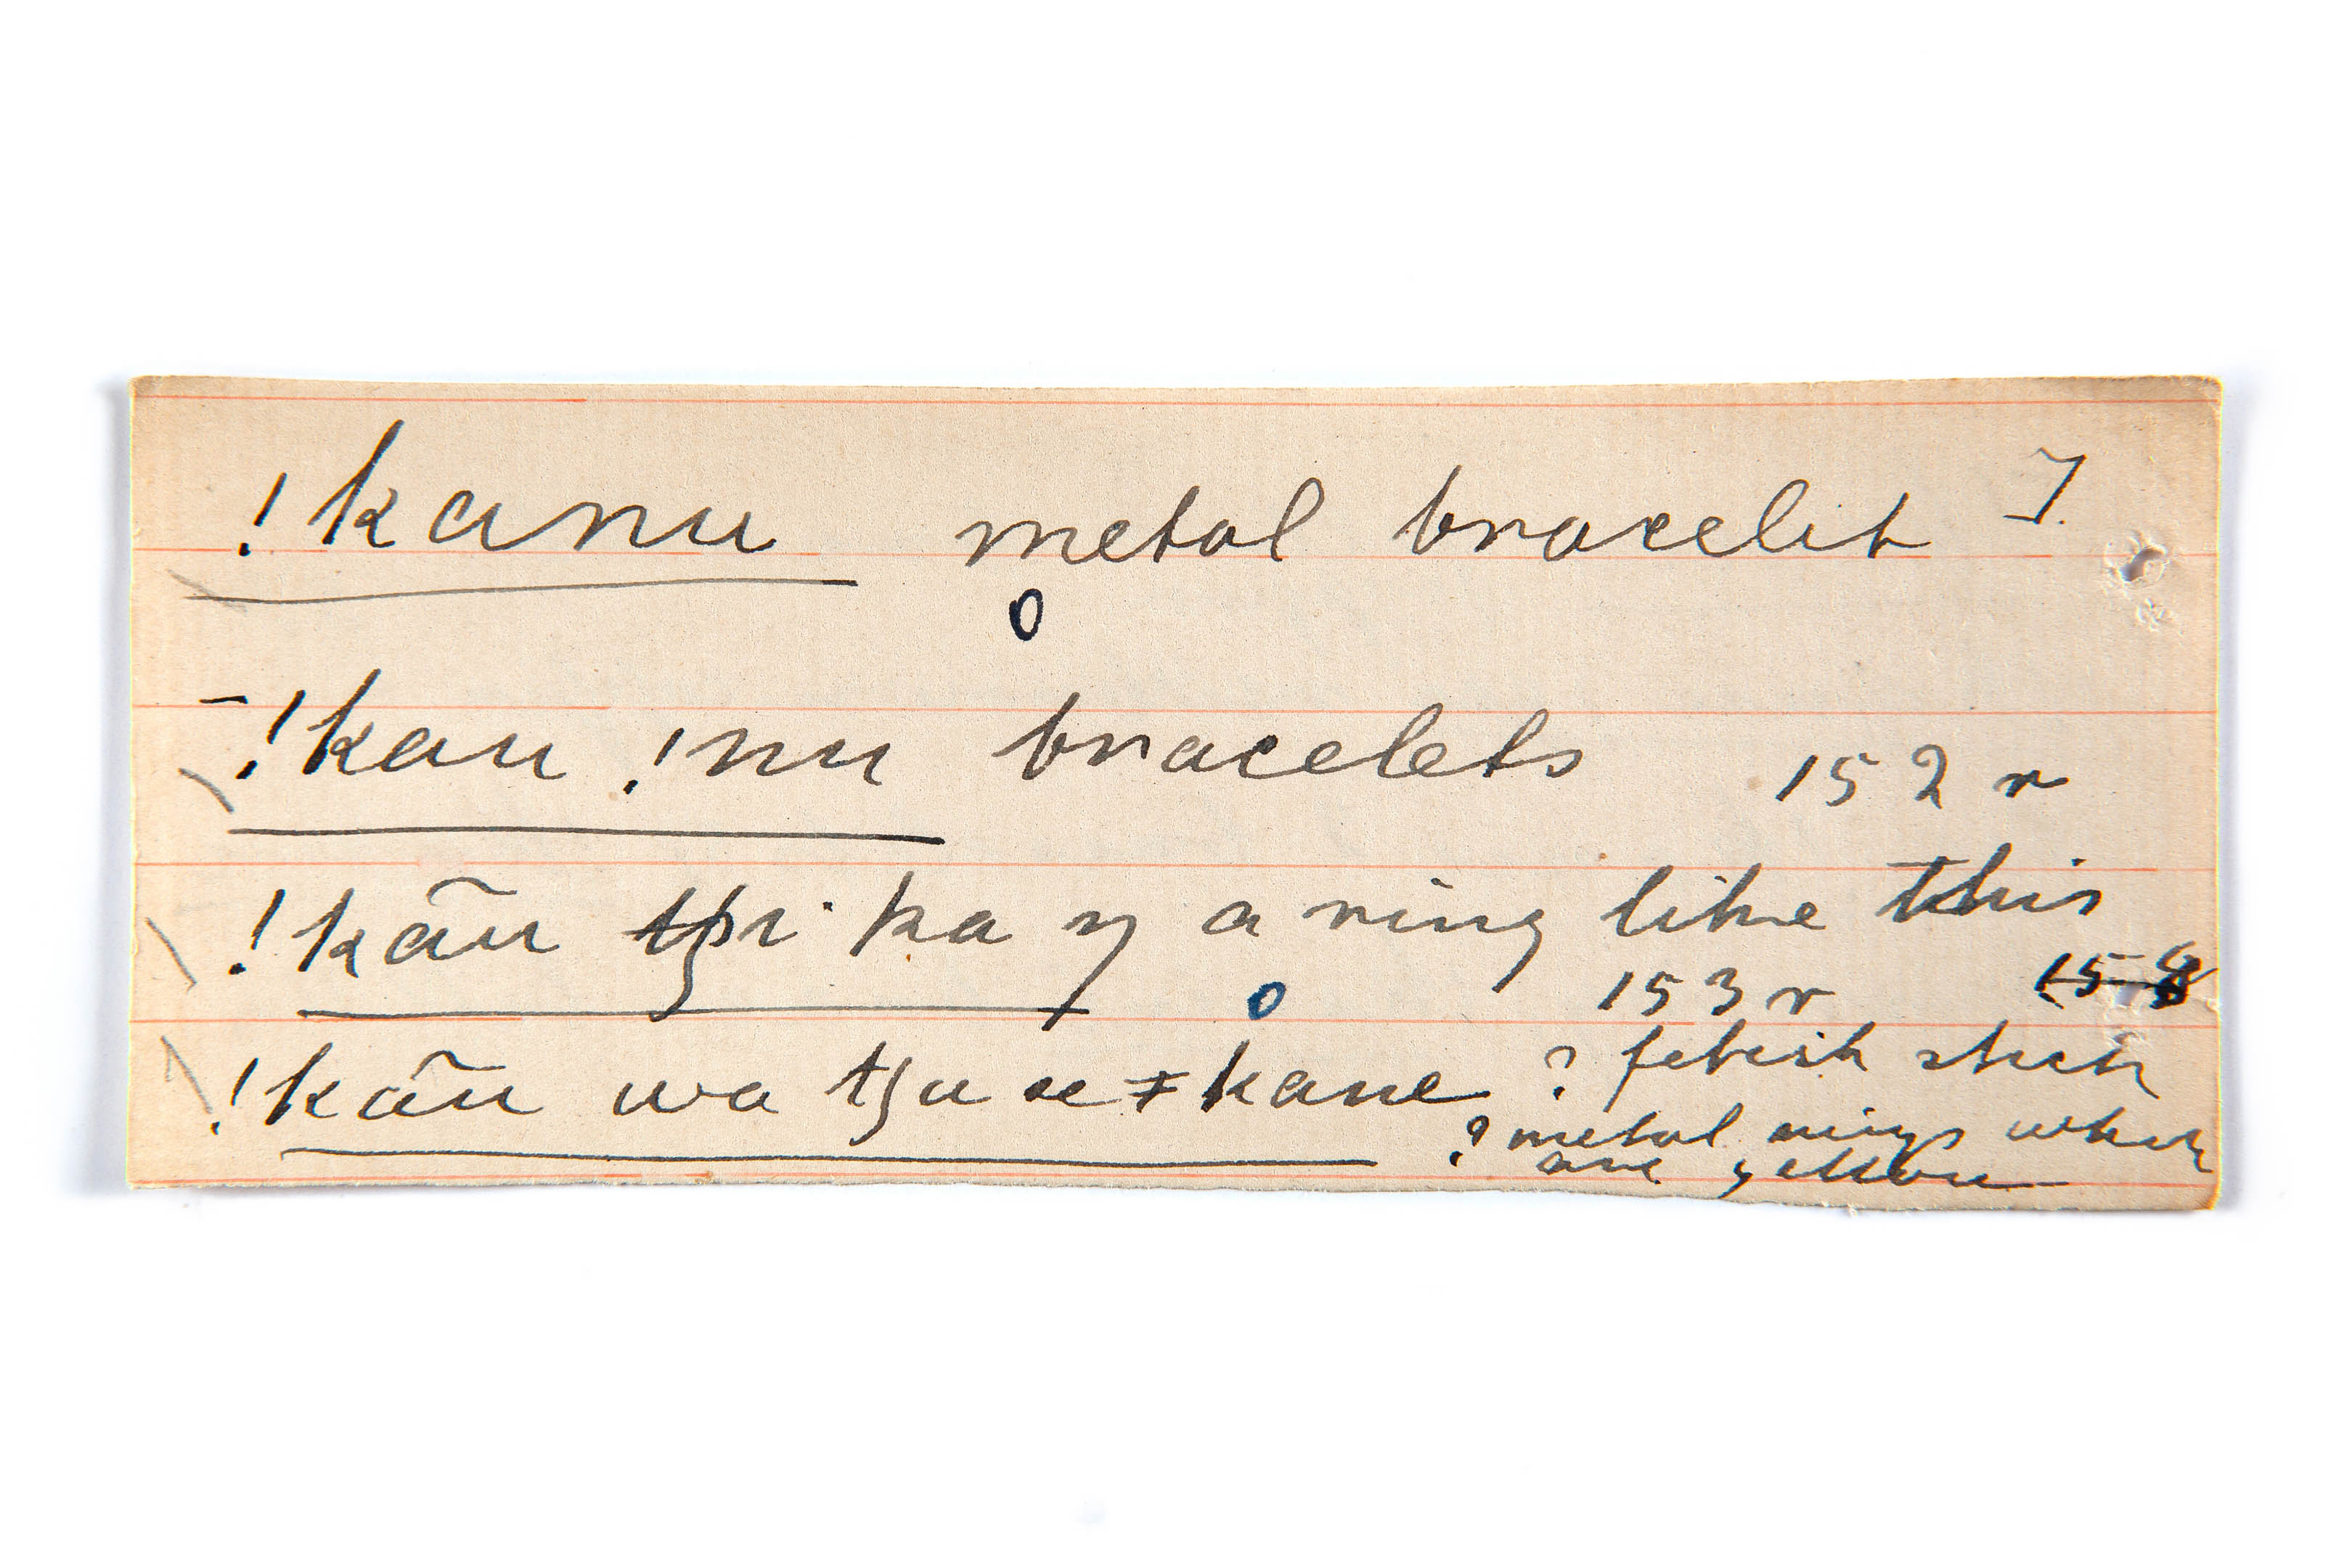 !kanu metal bracelit I.
O
-!kau !nu bracelets 152 r
!kãu ʒi ka ŋ a ring like this
O 153 r 15
!kãu wa tʒu se ǂkane ? fetish stick
? metal rings which
are yellow